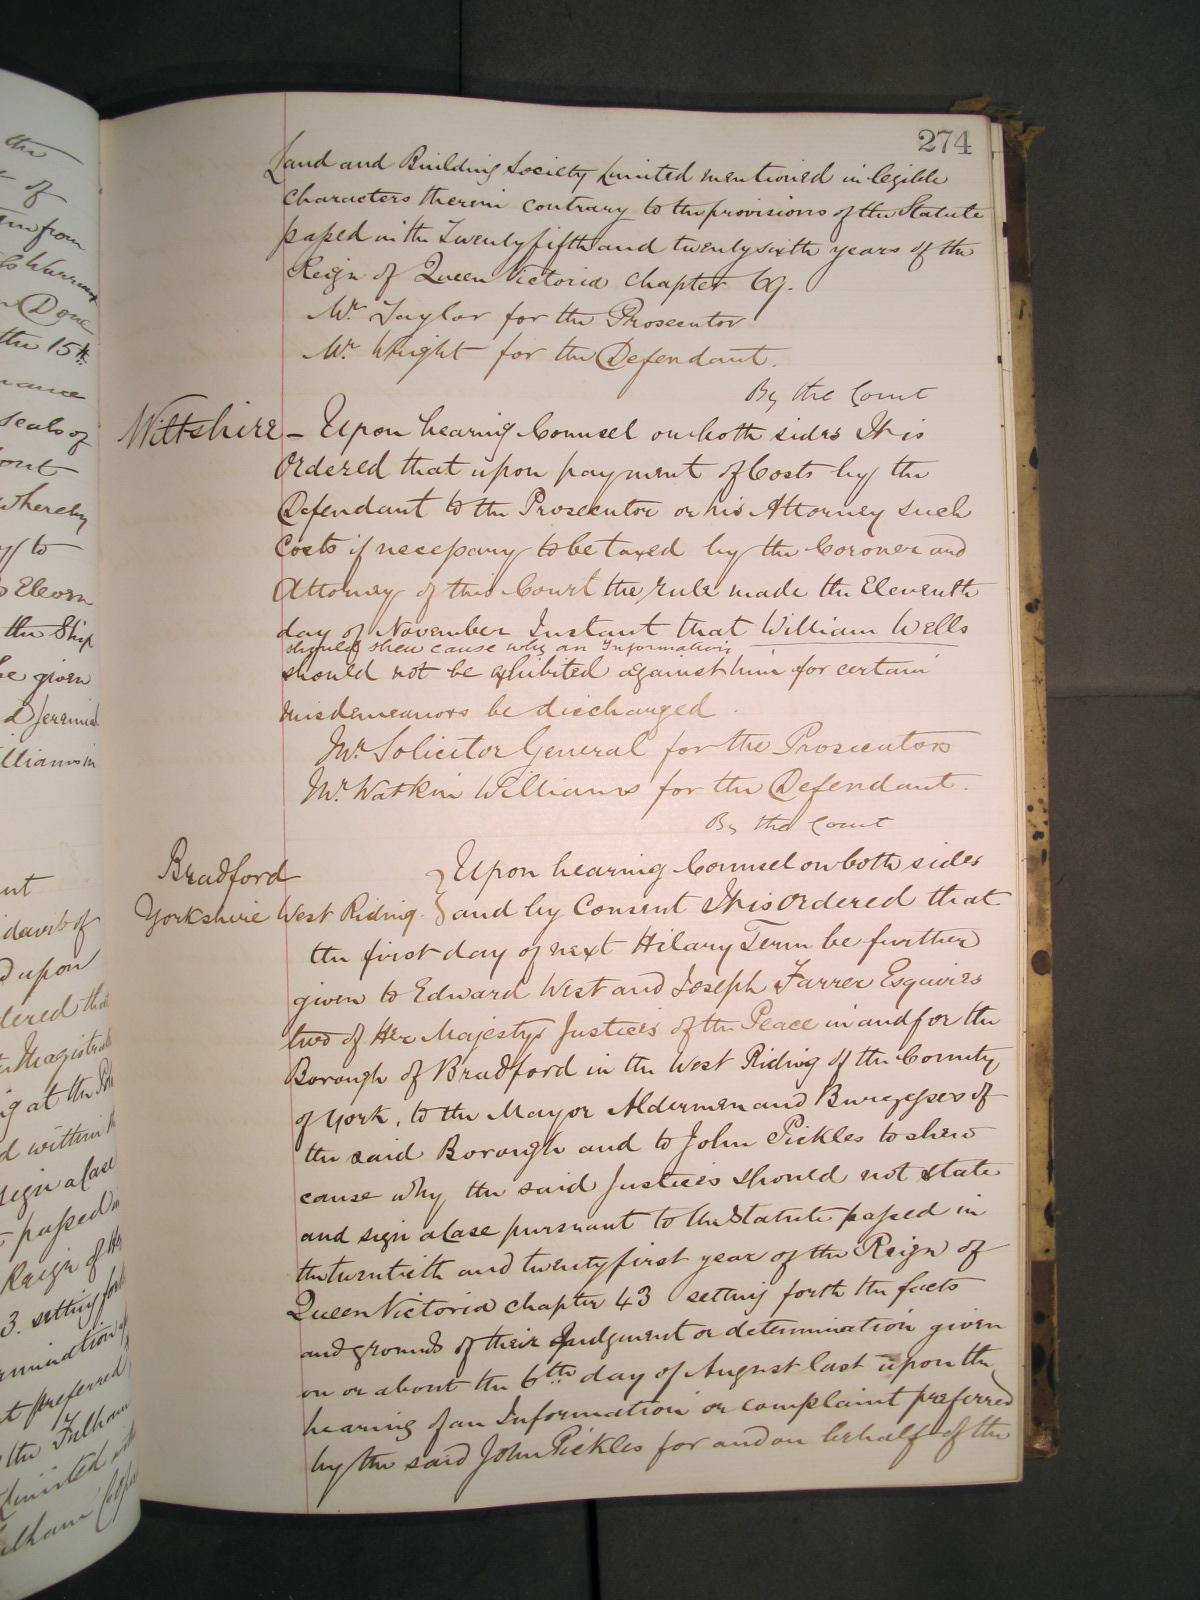 the
of
from
Done
the 15th
seals of
whereby
to
the Ship
be given
davit of
upon
dered that
Magistrate
ng at the
d within
sign a Case
passed in
Reign of
3. setting forth
ermination of
preferred
the Fulham
274
Land and Building Society Limited mentioned in legible
characters therein contrary to the provisions of the Statute
passed in the Twenty fifth and twenty sixth years of the
Reign of Queen Victoria chapter 69.
Mr. Taylor for the Prosecutor
Mr. Wright for the Defendant.
By the Court
Wiltshire – Upon hearing Counsel on both sides It is
Ordered that upon payment of Costs by the
Defendant to the Prosecutor or his Attorney such
Costs if necessary to be taxed by the Coroner and
Attorney of this Court the rule made the Eleventh
day of November Instant that William Wells
should shew cause why an Information
should not be exhibited against him for certain
misdemeanors be discharged.
Mr. Solicitor General for the Prosecutors
Mr. Watkin Williams for the Defendant.
By the Court
Bradford } Upon hearing Counsel on both sides
Yorkshire West Riding. } and by Consent It is Ordered that
the first day of next Hilary Term be further
given to Edward West and Joseph Farrer Esquires
two of Her Majestys Justices of the Peace in and for the
Borough of Bradford in the West Riding of the County
of York, to the Mayor Aldermen and Burgesses of
the said Borough and to John Pickles to shew
cause why the said Justices should not state
and sign a Case pursuant to the Statute passed in
the twentieth and twenty first year of the Reign of
Queen Victoria chapter 43 setting forth the facts
and grounds of their Judgment or determination given
on or about the 6th day of August last upon the
hearing of an Information or complaint preferred
by the said John Pickles for and on behalf of the